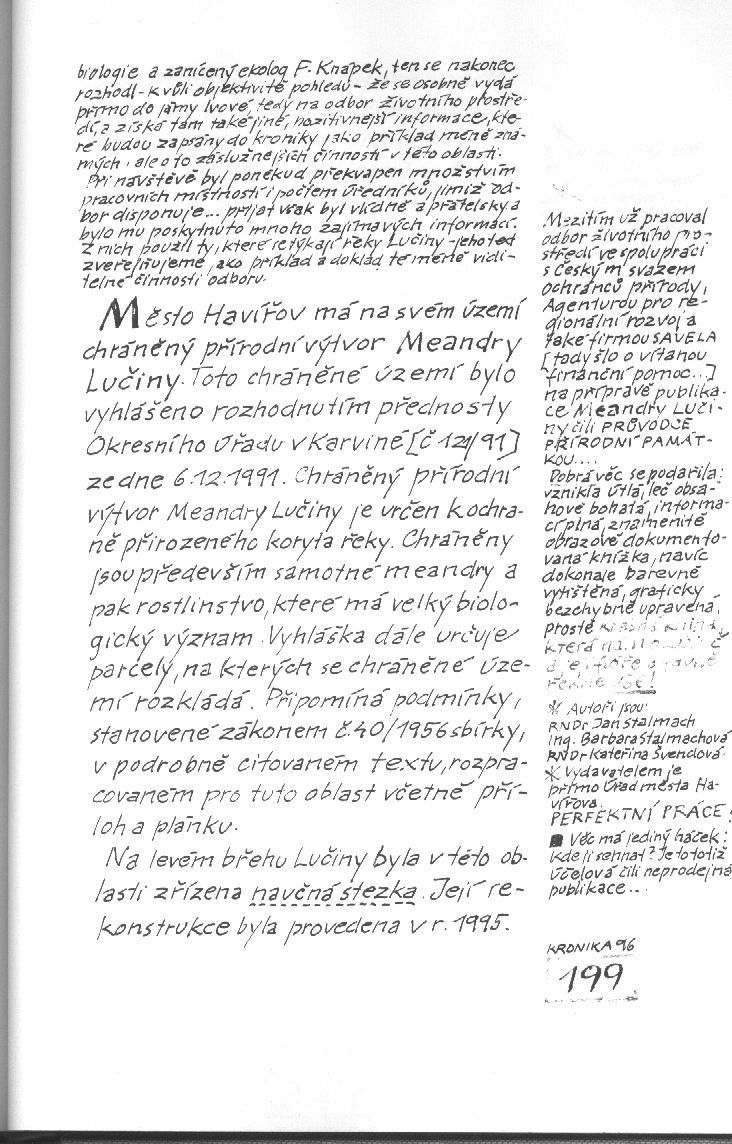 biologie a zanícený ekolog F. Knápek, ten se nakonec
rozhodl - kvůli objektivitě pohledu - že se osobně vydá
přímo do jámy lvové, tedy na odbor životního prostře-
dí, a získá tam také jiné, pozitivnější informace, kte-
ré budou zapsány do kroniky jako příklad méně zná-
mých, ale o to záslužnějších činností v této oblasti.
Při návštěvě byl poněkud překvapen množstvím
pracovních místností i počtem úředníků, jimiž od-
bor disponuje... přijat však byl vlídně a přátelsky a
bylo mu poskytnuto mnoho zajímavých informací.
Z nich použil ty, které se týkají řeky Lučiny - jeho text
zveřejňujeme, jako příklad a doklad té méně vidi-
telné činnosti odboru.
Město Havířov má na svém území
chráněný přírodní výtvor Meandry
Lučiny. Toto chráněné území bylo
vyhlášeno rozhodnutím přednosty
Okresního úřadu v Karviné [č 124/91]
ze dne 6.12.1991. Chráněný přírodní
výtvor Meandry Lučiny je určen k ochra-
ně přirozeného koryta řeky. Chráněny
jsou především samotné meandry a
pak rostlinstvo, které má velký biolo-
gický význam. Vyhláška dále určuje
parcely, na kterých se chráněné úze-
mí rozkládá. Připomíná podmínky,
stanovené zákonem č.40/1956 sbírky,
v podrobně citovaném textu, rozpra-
covaném pro tuto oblast včetně pří-
loh a plánku.
Na levém břehu Lučiny byla v této ob-
lasti zřízena naučná stezka. Její re-
konstrukce byla provedena v r. 1995.
Mezitím už pracoval
odbor životního pro-
středí ve spolupráci
s Českým svazem
ochránců přírody,
Agenturou pro re-
gionální rozvoj a
také firmou SAVELA
[tady šlo o vítanou
finanční pomoc...]
na přípravě publika-
ce Meandry Luči-
ny čili PRŮVODCE
PŘÍRODNÍ PAMÁT-
KOU....
Dobrá věc se podařila:
vznikla útlá, leč obsa-
hově bohatá, informa-
cí plná, znamenitě
obrazově dokumento-
vaná knížka, navíc
dokonale barevně
vytištěná, graficky
bezchybně upravená,
prostě krásná kniha,
která
řekne vše!
* Autoři jsou:
RNDr Jan Stalmach
Ing. Barbara Stalmachová
RNDr Kateřina Švendová.
* Vydavatelem je
přímo Úřad města Ha-
vířova.
PERFEKTNÍ PRÁCE!
■ Věc má jediný háček:
Kde ji sehnat? Je to totiž
účelová čili neprodejná
publikace...
KRONIKA 96
199